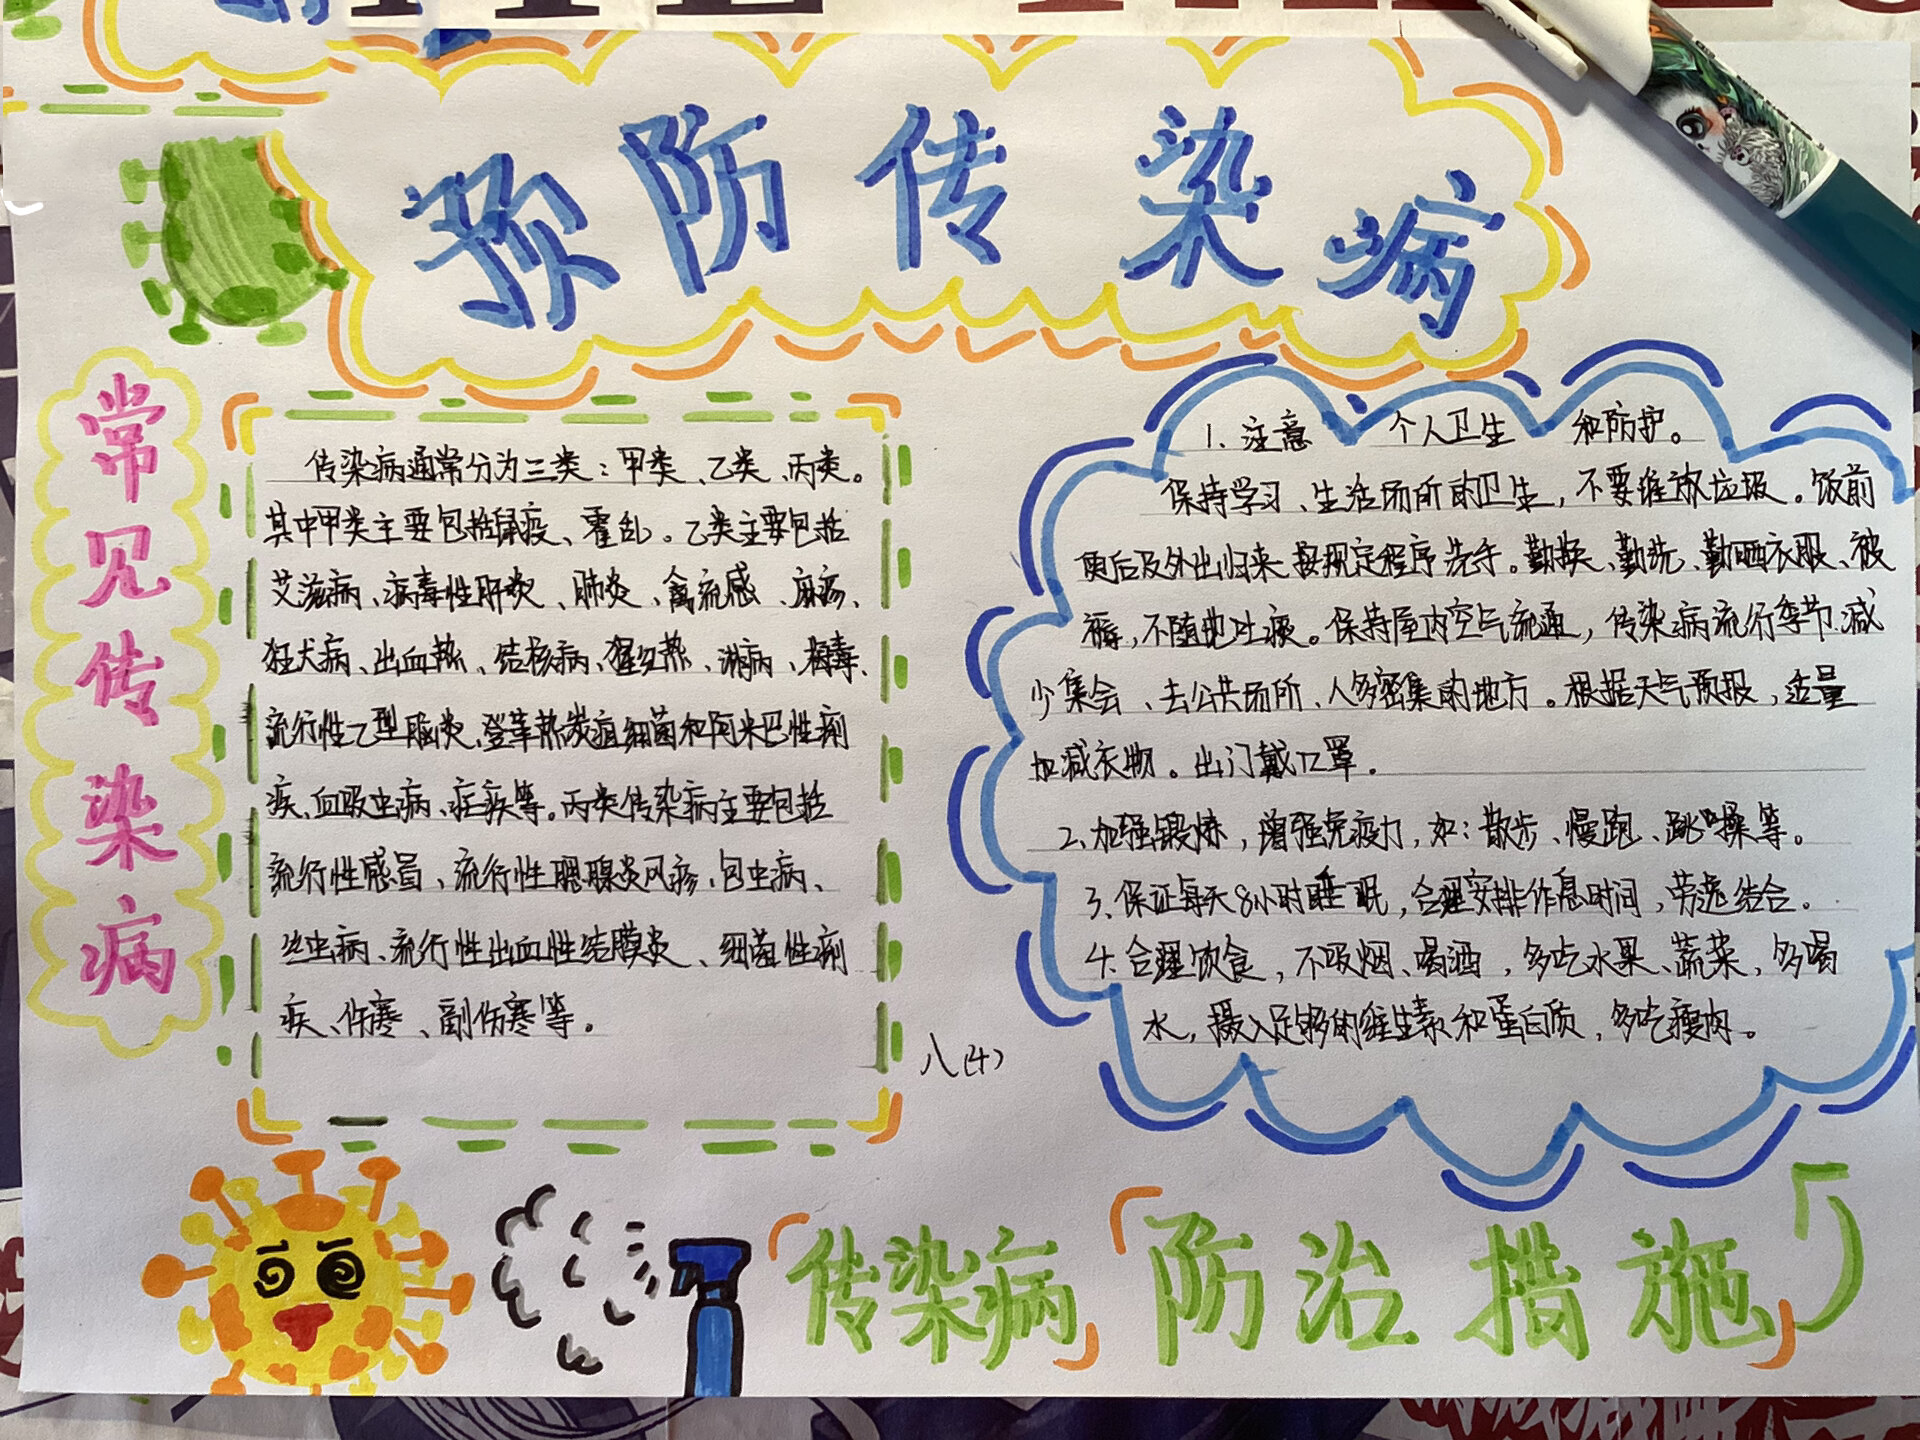 预防传染病
常见传染病
传染病通常分为三类：甲类、乙类、丙类。
其中甲类主要包括鼠疫、霍乱。乙类主要包括
艾滋病、病毒性肝炎、肺炎、禽流感、麻疹、
狂犬病、出血热、结核病、猩红热、淋病、梅毒、
流行性乙型脑炎、登革热炭疽细菌和阿米巴性痢
疾、血吸虫病、疟疾等。丙类传染病主要包括
流行性感冒、流行性腮腺炎风疹、包虫病、
丝虫病、流行性出血性结膜炎、细菌性痢
疾、伤寒、副伤寒等。
1、注意 个人卫生 和防护。
保持学习、生活场所的卫生，不要堆放垃圾。饭前
便后及外出归来按规定程序洗手。勤换、勤洗、勤晒衣服、被
褥，不随地吐痰。保持屋内空气流通，传染病流行季节减
少集会、去公共场所、人多密集的地方。根据天气预报，适量
加减衣物。出门戴口罩.
2、加强锻炼，增强免疫力，如：散步、慢跑、跳操等。
3、保证每天8小时睡眠，合理安排作息时间，劳逸结合.
4、合理饮食，不吸烟、喝酒，多吃水果、蔬菜，多喝
水，摄入足够的维生素和蛋白质，多吃瘦肉。
八(4)
传染病 防治措施